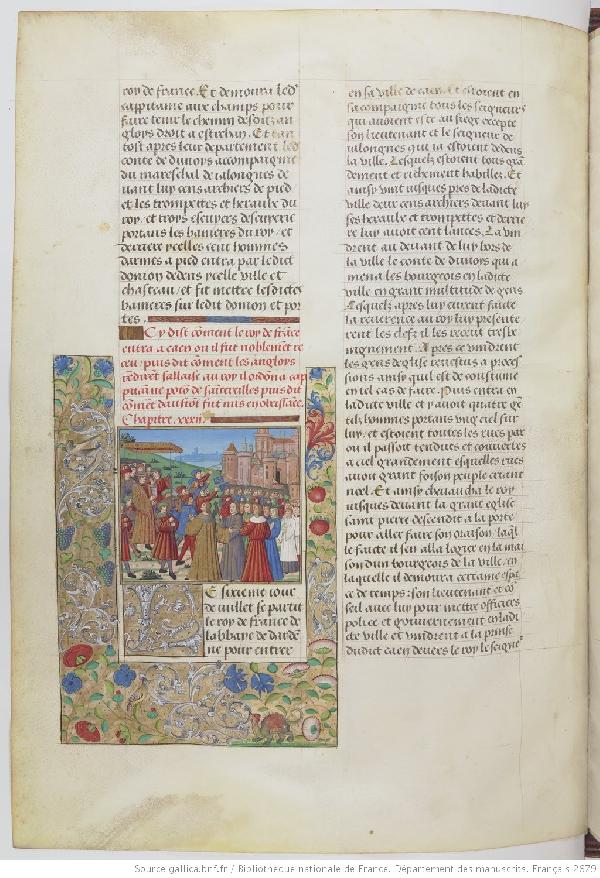 roy de france. Et demoura led
cappitaine aux champs pour
faire tenir le chemin desditz an
gloys droit a estrehan. Et tan
tost apres leur departement led
conte de dunoys acompaignie
du mareschal de ialongnes de
uant luy cens archiers de pied
et les trompettes et heraulx du
roy, et troys escuyers descuyerie
portans les banieres du roy, et
derriere ycelles cent hommes
darmes a pied entra par ledit
donion dedens ycelle ville et
chasteau, et fit mettre lesdictes
banieres sur ledit donion et por
tes.
Cy dist coment le roy de france
entra a caen ou il fut noblement re
ceu, puis dit coment les angloys
au roy il ordona a cap
pitaine poton de sainterailles puis dit
coment fut mis en obeissace.
Chapitre. xxxii.
Le sixieme iour
de iuillet se partit
le roy de france de
labbaye de darde
ne pour entrer
en sa ville de caen. Et estoient en
sa compaignie tous les seigneurs
qui auoient este au siege excepte
son lieutenant et le seigneur de
ialongnes qui ia estoient dedens
la ville. Lesquelz estoient tous gran
dement et richement habillez. Et
ainsy vint iusques pres de ladicte
ville deux cens archiers deuant luy
ses heraulx et trompettes et derrie
re luy auoit cent lances. La vin
drent au deuant de luy hors de
la ville le conte de dunoys qui a
mena les bourgeois en ladicte
ville en grant multitude de gens
Lesquelz apres luy eurent faicte
la reuerence au roy luy presente
rent les clefz il les receut tres be
nignement. Apres ce vindrent
les gens deglise reuestus a proces
sions ainsy quil est de coustume
en tel cas de faire. Puis entra en
ladicte ville et y auoit quatre ge
telz hommes portans ung ciel sur
luy, et estoient toutes les rues par
ou il passoit tendues et couuertes
a ciel grandement esquelles rues
auoit grant foison peuple criant
noel. Et ainsy cheuaucha le roy
iusques deuant la grant eglise
saint pierre descendit a la porte
pour aller faire son oraison, laql
le faicte il sen alla logier en la mai
son dun bourgeois de la ville. en
laquelle il demoura certaine espa
ce de temps. son lieutenant et co
seil auec luy pour mettre officiers
police et gouuernement en ladi
cte ville et vindrent a la prinse
dudit caen deuers le roy le seigne
Source gallica.bnf.fr / Bibliothèque nationale de France. Département des manuscrits. Français 2679